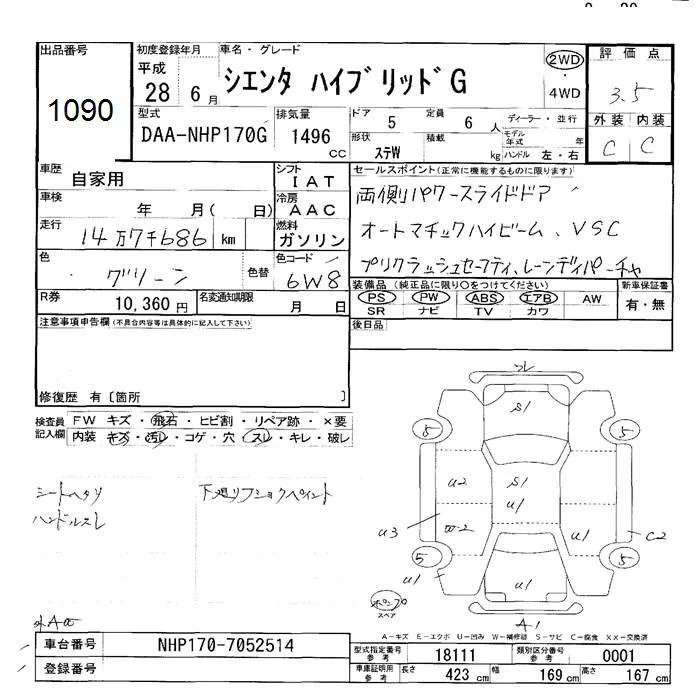 出品番号 初度登録年月 車名・グレード 評価点
1090 平成 28 6月 シエンタ ハイブリッドG 2WD・4WD 3.5
型式 排気量 ドア 5 定員 6人 ディーラー・並行 外装 内装
DAA-NHP170G 1496cc 形状 ステW 積載 kg モデル年式 年 ハンドル 左・右 C C
車歴 自家用 シフト IAT セールスポイント(正常に機能するものに限ります)
車検 年 月(日) 冷房 AAC 両側パワースライドドア
走行 14万7千686km 燃料 ガソリン オートマチックハイビーム、VSC
色 グリーン 色替 色コード 6W8 プリクラッシュセーフティ、レーンディパーチャ
R券 10,360円 名変通知期限 月 日 装備品(純正品に限り○をつけてください) 新車保証書
PS PW ABS エアB AW 有・無
SR ナビ TV カワ
注意事項申告欄(不具合内容等は具体的に記入して下さい) 後日品
修復歴 有〔箇所 〕
検査員記入欄 FW キズ・飛石・ヒビ割・リペア跡・×要
内装 キズ・汚レ・コゲ・穴・スレ・キレ・破レ
シートヘタリ 下廻リフショクペイント
ハンドルスレ
S1
5 5
U2 S1
U1
U3 W-2 U1 C2
5 5
U1 U1
スペア
A1
A-キズ E-エクボ U-凹み W-補修跡 S-サビ C-腐食 XX-交換済
車台番号 NHP170-7052514 型式指定番号 参考 18111 類別区分番号 参考 0001
登録番号 車庫証明用 参考 長さ 423cm 幅 169cm 高さ 167cm